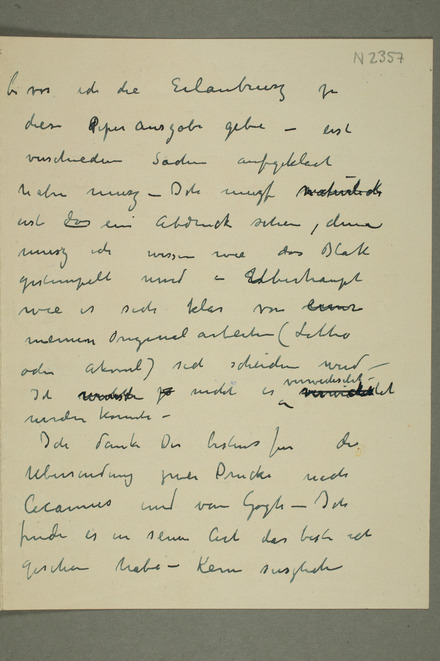 N 2357
bevor ich die Erlaubnisz zu
diese Piper ausgabe gebe – erst
verschiedene Sachen aufgeklärt
habe musz – Ich musz natürlich
erst das ein Abdruck sehen, dann
musz ich wissen wie das Blatt
gestempelt wird – Uberhaupt
wie es sich klar von
meinen Original arbeiten (Litho
oder Aktuel) sich scheiden wird –
Ich nicht es verwechselt
werden konnte –
Ich danke Dir bestens fur die
Ubersendung zwei Drucke nach
Cezannes und van Gogh – Ich
finde es in seiner Art das beste ich
gesehen habe – Kein